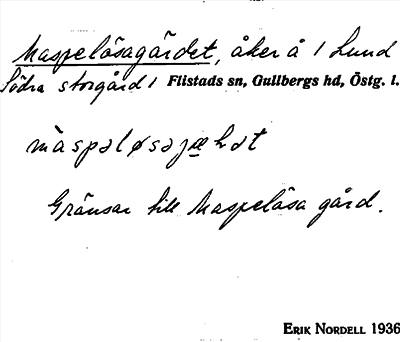 Maspelösagärdet, åker å 1 Lund
Södra storgård, Flistads sn, Gullbergs hd, Östg. l.
màspəløsajæ̲hət
Gränsar till Maspelösa gård.
ERIK NORDELL 1936